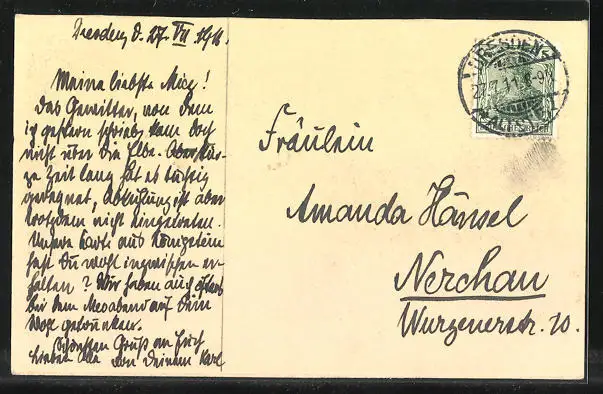 Dresden d. 27. VII. 1911.
Meine liebste Miez!
Das Gewitter, von dem
ich gestern schrieb, kam doch
nicht über die Elbe. Aber kur-
ze Zeit lang hat es tüchtig
geregnet, Abkühlung ist aber
trotzdem nicht eingetreten.
Unsere Karte aus Königstein
hast Du wohl inzwischen er-
halten? Wir haben auch
bei dem auf Dein
Wohl getrunken.
Gruß an Euch
Lieben alle von Deinem Karl
DRESDEN
27.7.11. 8-9N
ALTST.
Fräulein
Amanda Hänsel
Nerchau
Wurzenerstr. 10.